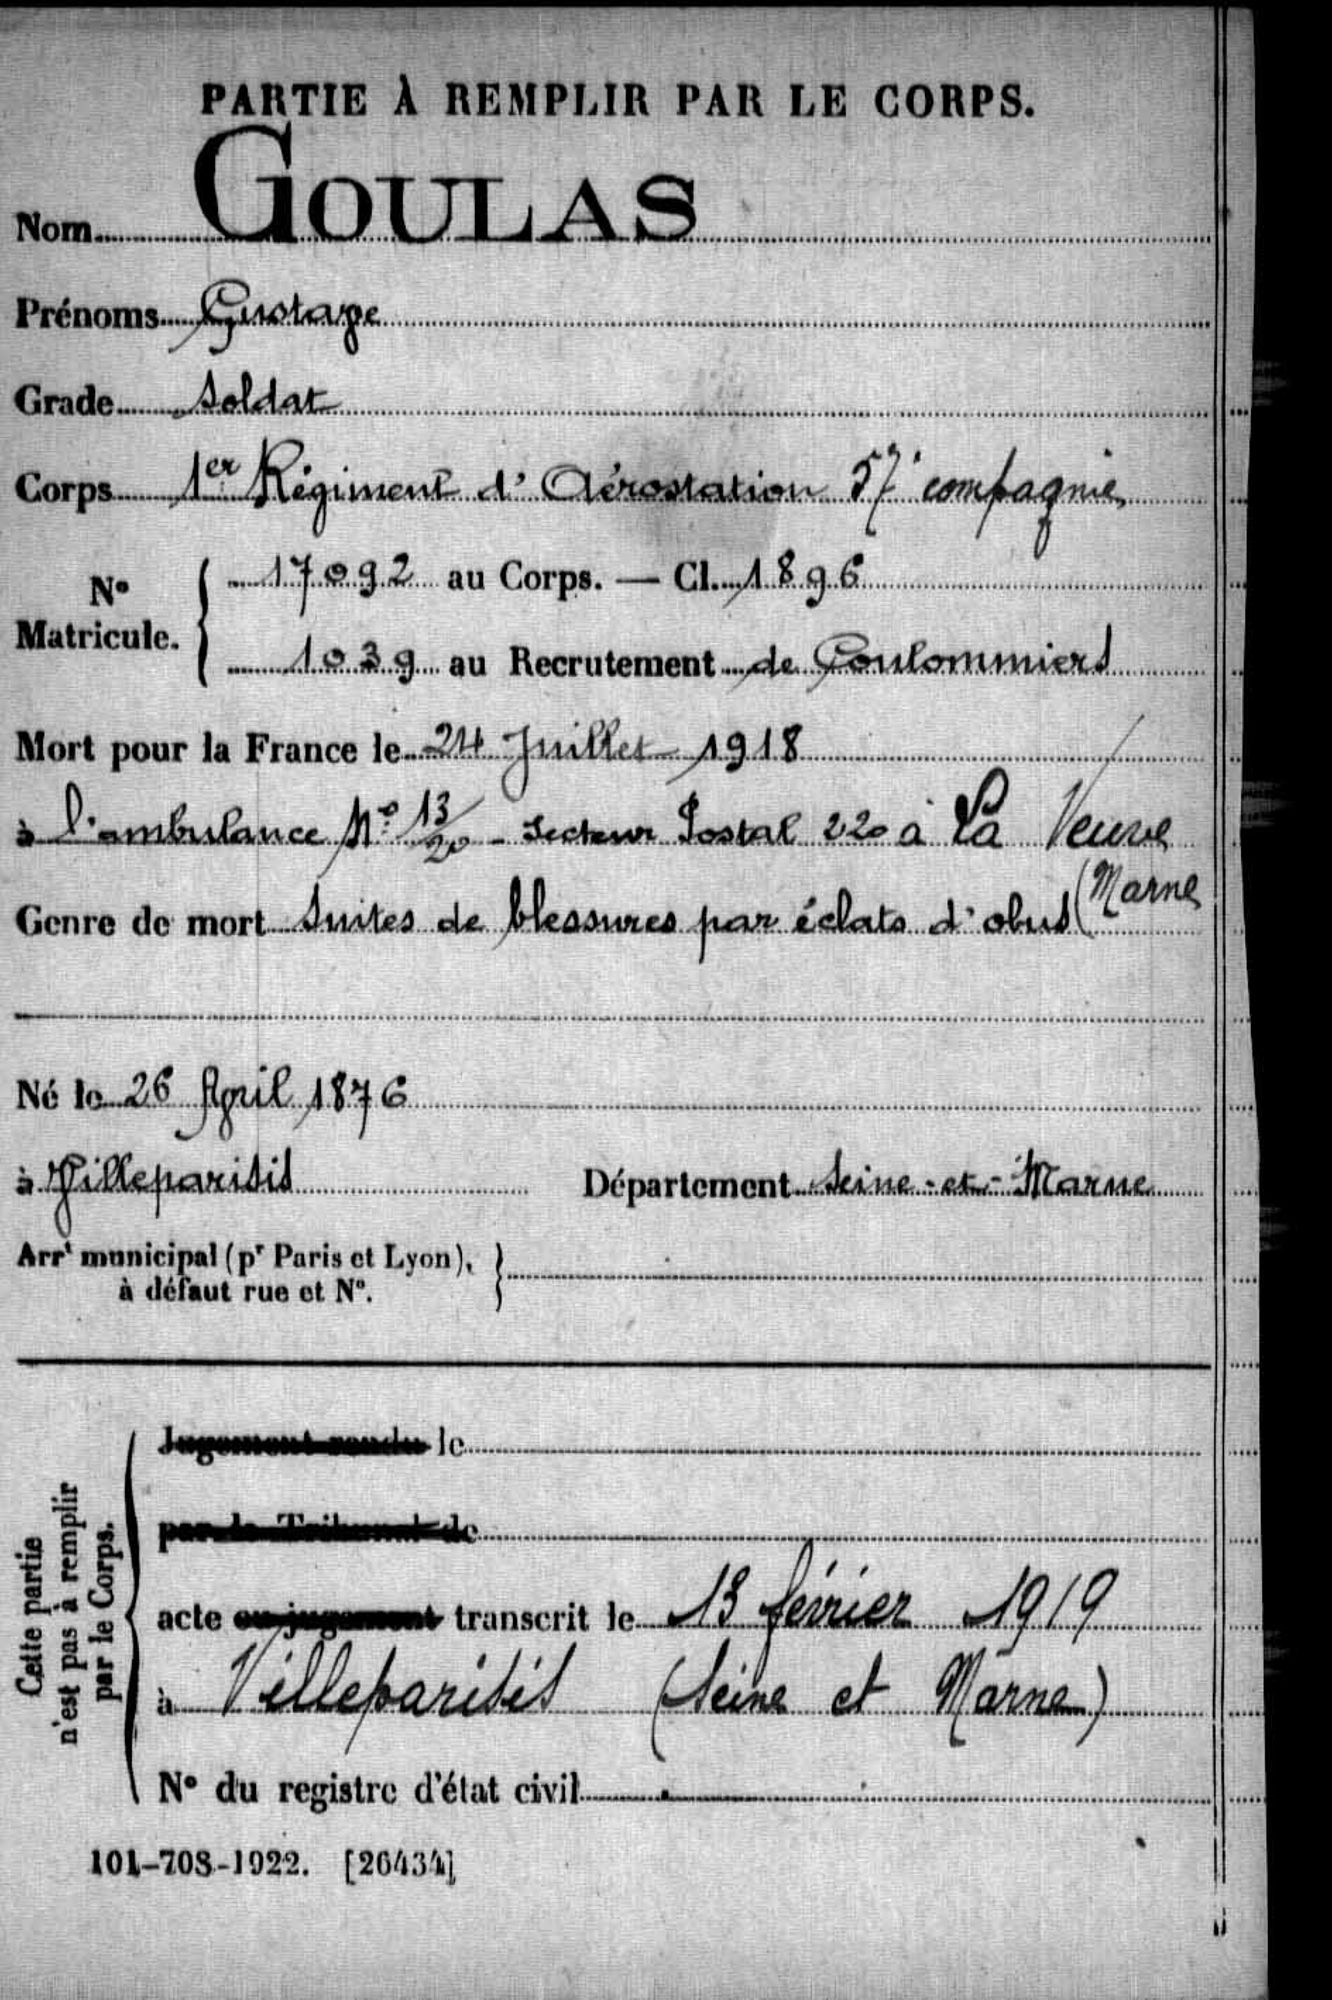 PARTIE À REMPLIR PAR LE CORPS.
Nom GOULAS
Prénoms Gustave
Grade Soldat
Corps 1er Régiment d'Aérostation 57e compagnie
N° Matricule. { 17092 au Corps. — Cl. 1896
1039 au Recrutement de Coulommiers
Mort pour la France le 24 Juillet 1918
à l'ambulance N° 13/20 - Secteur Postal 220 à La Veuve
(Marne
Genre de mort Suites de blessures par éclats d'obus
Né le 26 Avril 1876
à Villeparisis Département Seine-et-Marne
Arrt municipal (pr Paris et Lyon), }
à défaut rue et N°.
Cette partie
n'est pas à remplir
par le Corps.
Jugement rendu le
par le Tribunal de
acte ou jugement transcrit le 13 février 1919
à Villeparisis (Seine et Marne)
N° du registre d'état civil
101-708-1922. [26434]